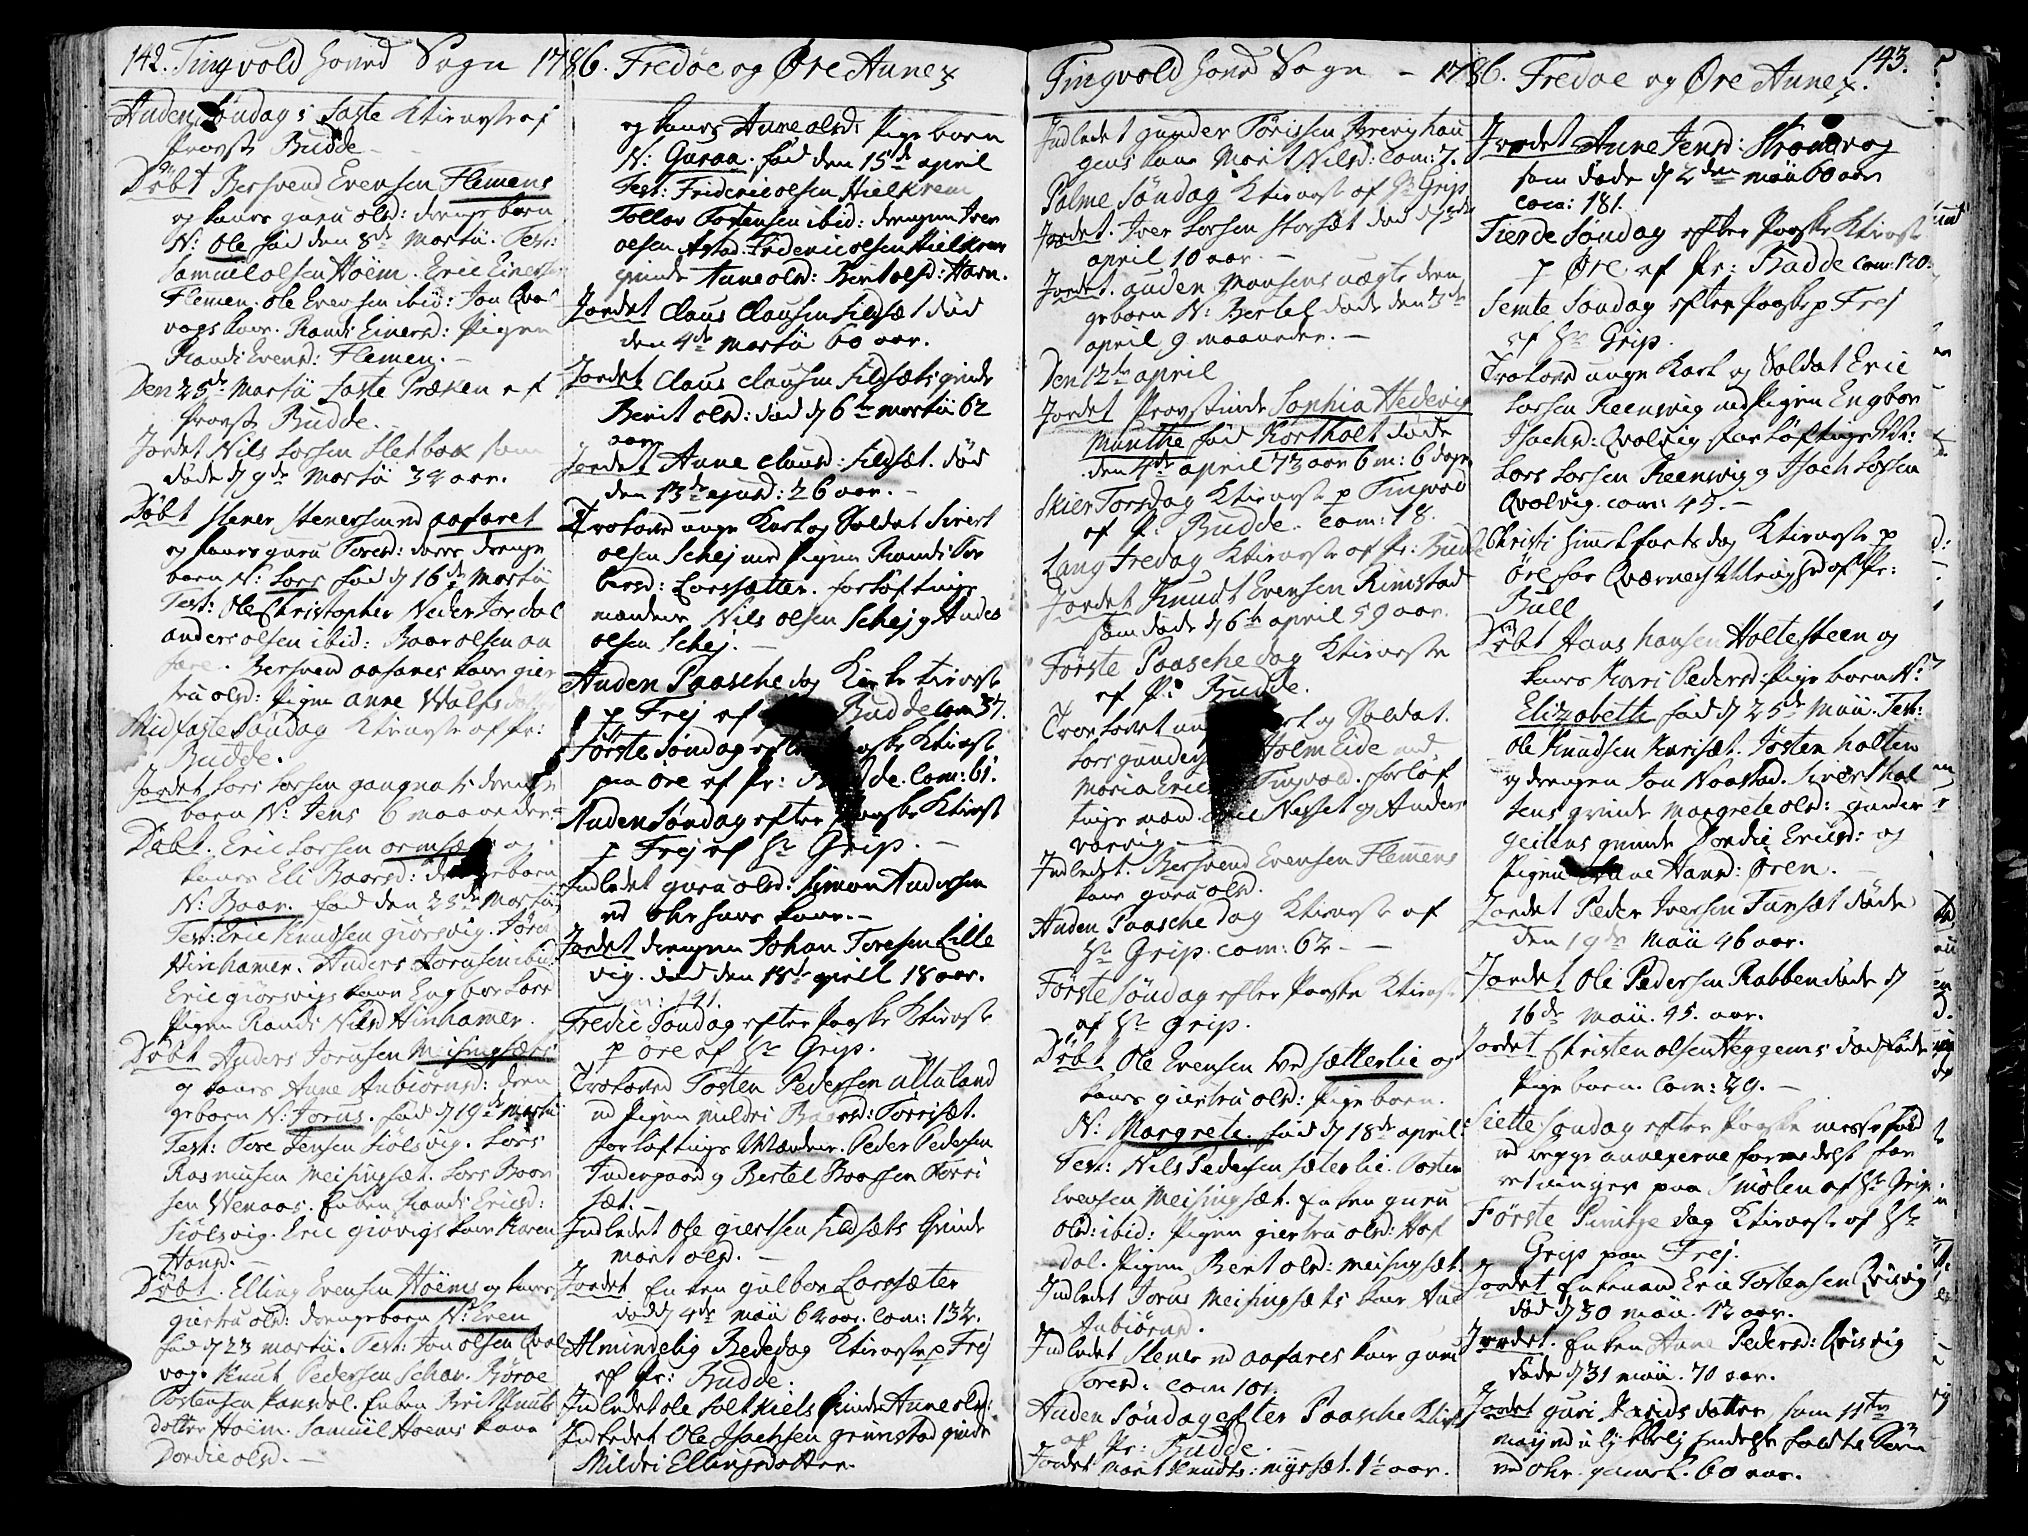 142. Tingvold hoved Sogn 1786. Fredøe og Øre Annex
Anden Søndag i Faste Ktieneste af
Provst Budde
Døbt Bersvend Evensen Flemens
og hans guru olsd: drenge barn
N: Ole fød den 8de Martii. Test:
Samuel olsen Hoëm. Eric Einersen
Flemen. Ole Evensen ibid: Jon Qval
vogs kone. Randi Einersd: Pigen
Randi Evensd: Flemen.
Den 25de Martii Faste Præken af
Provst Budde.
Jordet Nils Larsen Sletbak som
døde d 9de Martii 38 aar.
Døbt Stener Stenersen ved aafaret
og hans guru Toresd: deres drenge
barn N: Lars fød d 16de Martii
Test: Ole Christopher Neder Jordal
anders olsen ibid: Baar olsen aa
fare. Bersvend aafares kone gier
tru olsd: Pigen anne Wulfs datter
Midfaste Søndag Ktieneste af Pr:
Budde.
Jordet Lars Larsen gangnats drenge
barn N: Jens 6 maaneder
Døbt. Eric Larsen ormsæt og
hans Eli Baarsd: drengebarn
N: Baar. fød den 25de Martii
Test: Eric Knudsen giørsvig. Joru
Hinhamer. Anders Jorusen ibid:
Eric giørsvigs kone Engbor Lars
Pigen Randi Nilsd Hinhamer.
Døbt Anders Jorusen Meisingsæts
og hans Anne Anbiørnsd: dren
gebarn N: Jorus. fød d 19de Martii
Test: Tore Jensen Siølsvig. Lars
Rasmusen Meisingsæt. Lars Baar
sen Wenaas. Enken Randi Ericsd:
Siølsvig. Eric giørvigs kone Karen
Hansd.
Døbt. Elling Evensen Hoëms og hans
giertru olsd: drengebarn N: Even
fød d 23 martii. Test: Jon olsen Qval
vog. Knut Pedersen Schar. Børre
Tostensen Kansdal. Enken Brit Knuts
datter Hoëm. Samuel Hoems kone
Dordie olsd.
og hans Anne olsd: Pige barn
N: Guraa. fød den 15de april
Test: Frideric olsen Hielkrem
Tollov Tostensen ibid: drengen Iver
olsen Astad. Frideric olsen Hielkrem
qvinde Anne olsd: Berit olsd: Horn.
Jordet Claus Clausen Sildsæt død
den 4de Martii 60 aar.
Jordet Claus clausen Sildsæts qvinde
Berit olsd: død d 6te martii 62
aar
Jordet Anne clausd: Sildsæt. død
den 13de ejusd: 26 aar.
Trolovet unge Karl og Soldat Sivert
olsen Schej med Pigen Randi Tor
bersd: Larssætter. forløftings
mændene Nils olsen Schej og Anders
olsen Schej.
Anden Paasche dag Kirke tieneste
p Frej af Budde com 37.
Første Søndag efter Paaske Ktieneste
paa Øre af Pr: Budde. Com: 61.
Anden Søndag efter Paaske Ktieneste
p Frej af Hr Grip.
Indledet guru olsd: Simon Andersen
ved ohrhaus kone.
Jordet drengen Johan Toresen Lille
vig. død den 18de april 18 aar.
com: 141.
Tredie Søndag efter Paaske Ktieneste
p øre af Hr Grip.
Trolovet Tosten Pedersen ulluland
med Pigen Mildri Baarsd: Torrisæt.
forløftings Mændene. Peder Pedersen
Indergaard og Bertel Baarsen Torri
sæt.
Indledet Ole giertsen Sildsæts Qvinde
Marit olsd.
Jordet Enken gulbor Larssæter
død d 4de Maii 62 aar. com: 132.
Almindelig Bededag Ktieneste p Frej
af Pr: Budde.
Indledet ole Soltkiels qvinde Anne olsd:
Indledet Ole Isachsen grimstad qvinde
Mildri Ellingsdatter.
Tingvold hoved Sogn - 1786. Fredøe og Øre Annex. 143.
Indledet gunder Torissen Breivighau
gens kone Marit Nilsd: com: 7.
Palme Søndag Ktieneste af Hr Grip
Jordet. Iver Larsen Storsæt død d 7de
april 10 aar.
Jordet. anden Monsens uægte dren
gebarn N: Bertel døde den 3de
april 9 maaneder.
Den 12te april
Jordet Provstinde Sophia Hedevig
Munthe fød Kortholt døde
den 4de april 73 aar 6 m: 6 dage
Skier Torsdag Ktieneste p Tingvold
af Pr: Budde. com: 18.
Lang Fredag Ktieneste af Pr: Budde
Jordet Knudt Evensen Rimstad
som døde d 6te april 59 aar.
Første Paasche dag Ktieneste
af Pr Budde.
Trolovet unge Karl og Soldat.
Lars gunders Holm Eide med
Maria Erics Tingvold. forløf
tings mænd Nesset og Anders
varvig
Indledet. Bersvend Evensen Flemens
kone guru olsd.
Anden Paasche dag Ktieneste af
Hr Grip. com: 62
Første Søndag efter Paaske Ktieneste
af Hr Grip.
Døbt Ole Evensen ved sætterlie og
hans giertru olsd: Pige barn.
N: Margrete. fød d 18de april
Test: Nils Pedersen Sæterlie. Tosten
Evensen Meisingsæt. Enken guru
olsd: ibid: Pigen giertru olsd: Hof
dal. Pigen Berit olsd: Meisingsæt.
Indledet Jorus Meisingsæts kone Anne
Anbiørnsd.
Indledet Stener ved aafares kone guru
Toresd. com 101.
Anden Søndag efter Paasche Ktieneste
af Pr: Budde.
Jordet Marit Knudts: Myrsæt. 1½ aar.
Jordet Anne Jensd: Strømsvog
som døde d 2den Maii 60 aar
com: 181.
Fierde Søndag efter Paaske Ktieneste
p Øre af Pr: Budde com: 120.
Femte Søndag efter Paaske p Frej
af Hr Grip.
Trolovet unge Karl og Soldat Eric
Larsen Reensvig med Pigen Engbor
Isachsd: Qvalvig forløftings M:
Lars Larsen Reensvig og Isach Larsen
Qvalvig. com: 45.
Christi Himmelfarts dag Ktieneste p
Øre for af Pr:
Bull
Døbt Hans hansen Holtesteen og
hans Kari Pedersd: Pige barn N:
Elizabeth fød d 25de Maii. Test:
Ole Knudsen Kurisæt. Josten holten
og drengen Jon Naastad. Sivert hol
tens qvinde Margrete olsd: gunder
geilens qvinde Dordie Ericsd: og
Pigen Hansd: Øren.
Jordet Peder Iversen Tunsæt døde
den 19de Maii 46 aar.
Jordet Ole Pedersen Rabben døde d
16de Maii. 45. aar.
Jordet Christen olsen Heggems dødfødte
Pige barn. Com: 29.
Siette Søndag efter Paaske messe fald
ved begge annexerne formedelst for
retninger paa Smølen af Hr Grip
Første Pintze dag Ktieneste af Hr
Grip paa Frej.
Jordet Enkemand Eric Tostensen Qvisvig
død d 30 maii. 72 aar.
Jordet. Enken Anne Pedersd: Qvisvig
døde d 31 maii. 70 aar.
Jordet guri datter som 11te
maij ved ulykkelig hendelse faldt
ved ohr 60 aar.